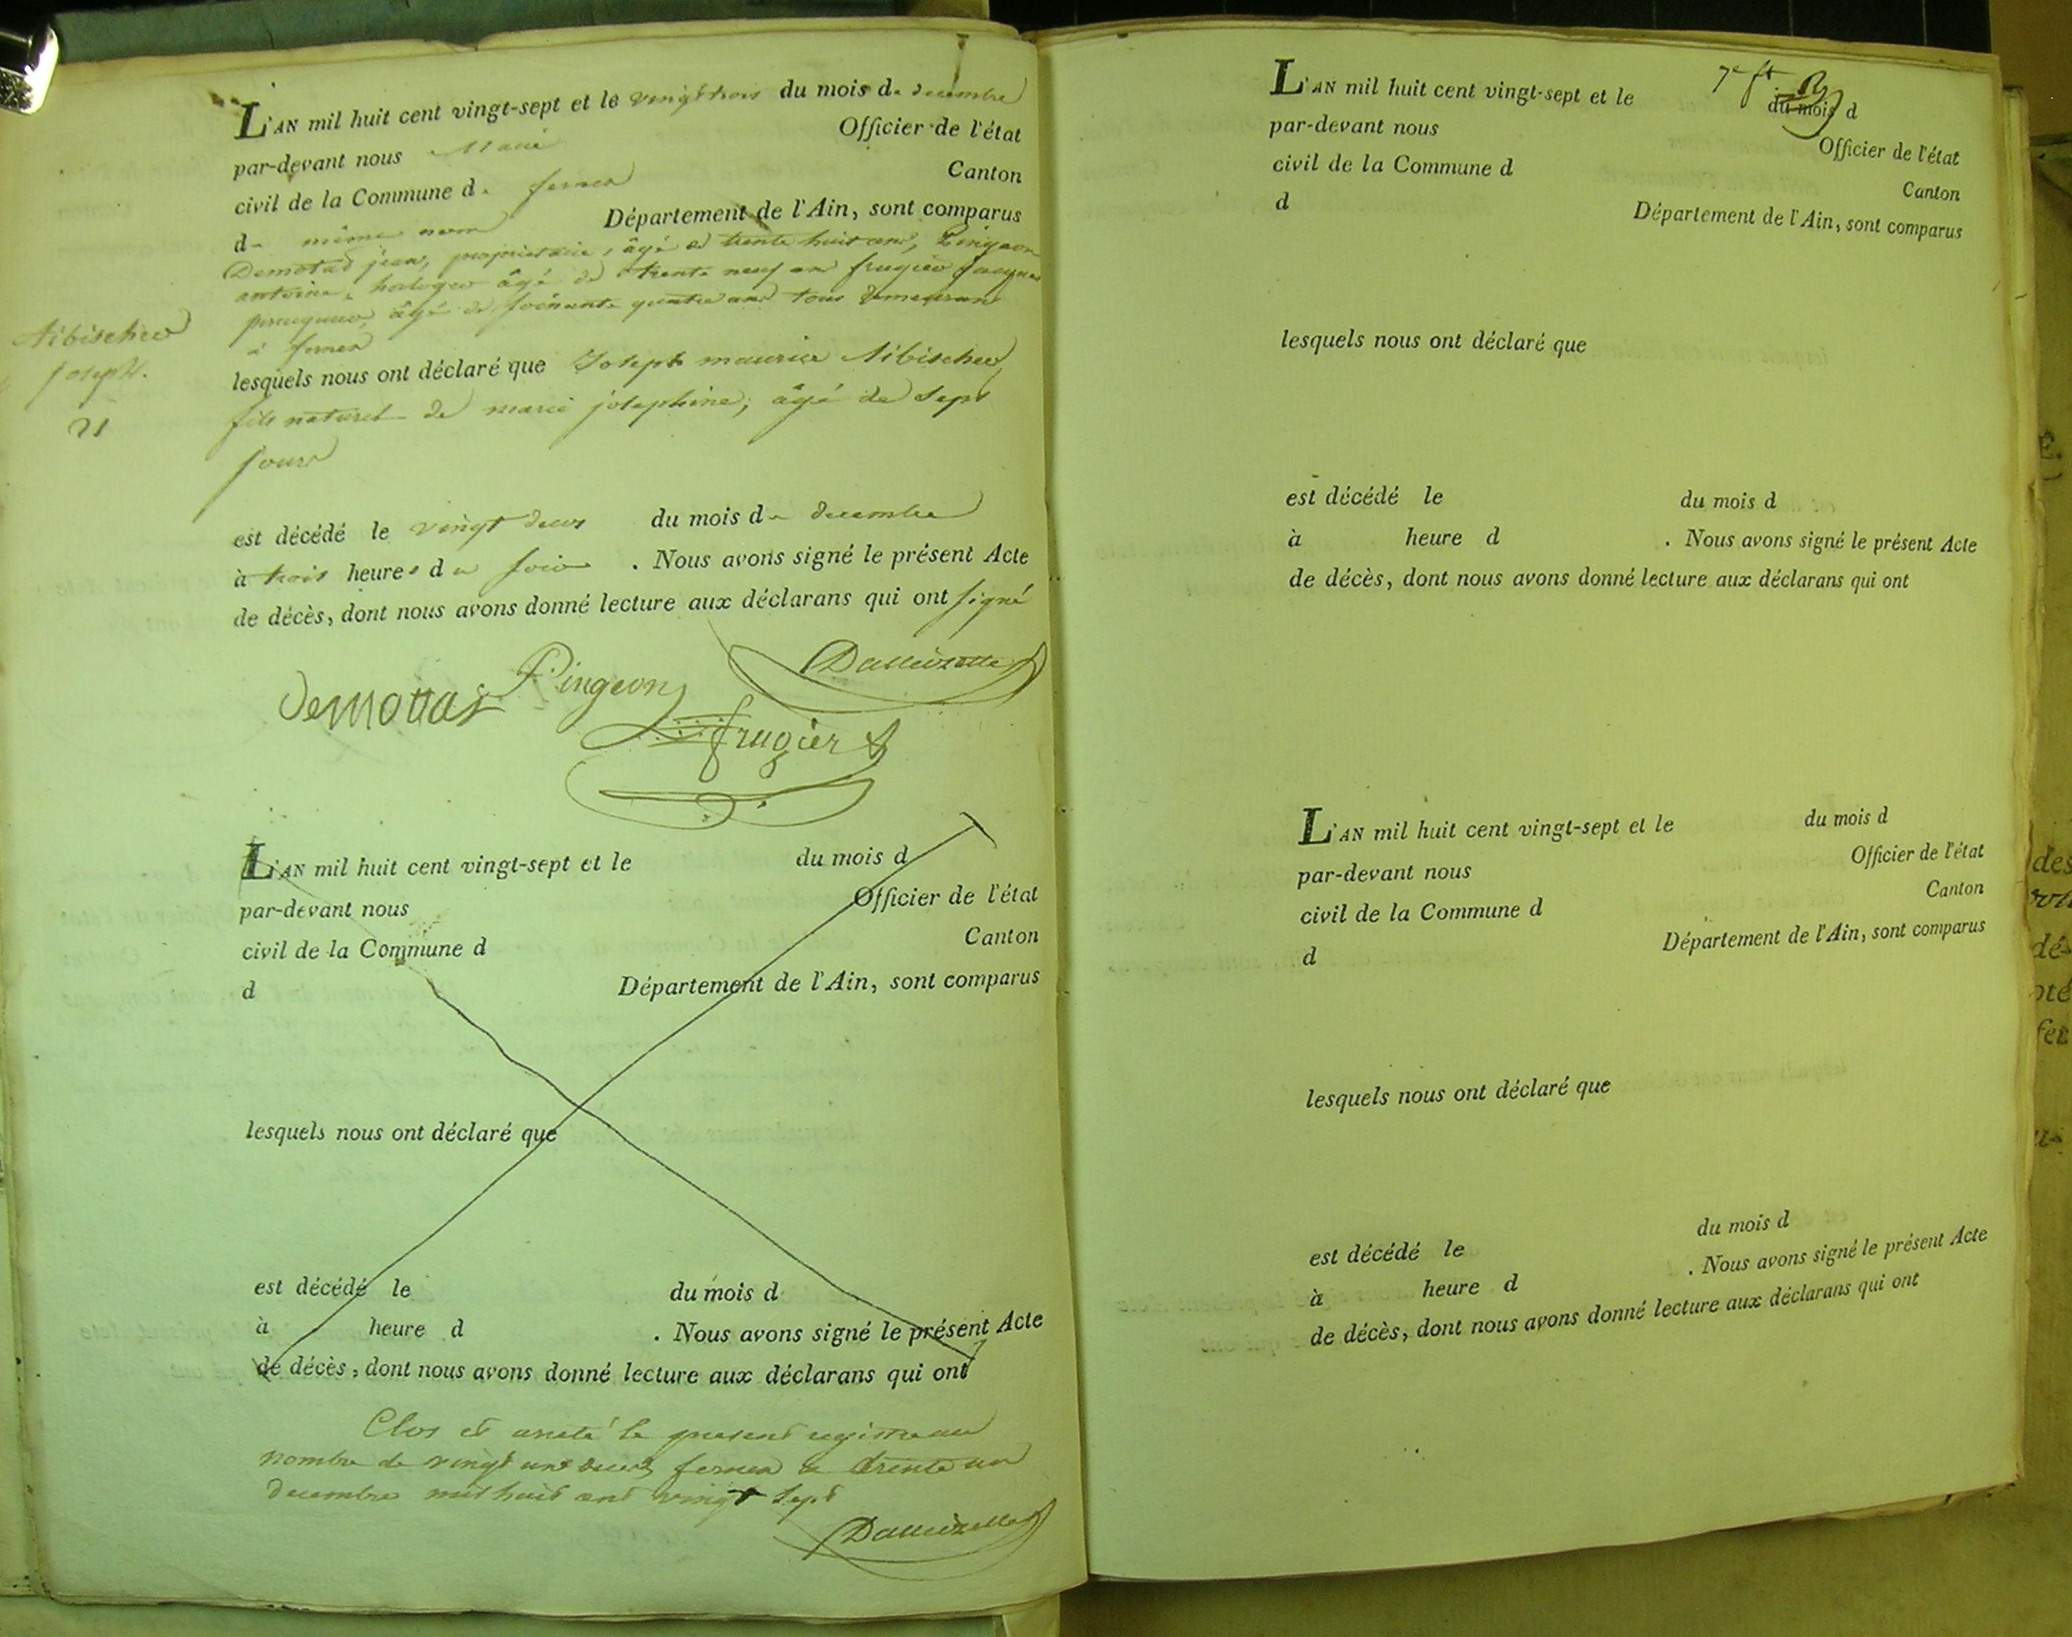 L'AN mil huit cent vingt-sept et le vingt trois du mois de decembre
par-devant nous Maire Officier de l'état
civil de la Commune de fernex Canton
de même nom Département de l'Ain, sont comparus
Demottas jean, propriétaire, âgé de trente huit ans, Pingeon
antoine, horloger âgé de trente neuf ans frugier jacques
perruquier, âgé de soixante quatre ans tous demeurans
à fernex
Aibischer
Joseph.
21
lesquels nous ont déclaré que Joseph maurice Aibischer
fils naturel de marie josephine, âgé de sept
jours
est décédé le vingt deux du mois de decembre
à trois heures du soir . Nous avons signé le présent Acte
de décès, dont nous avons donné lecture aux déclarans qui ont signé
Demottas Pingeon
frugier
L'AN mil huit cent vingt-sept et le du mois d
par-devant nous Officier de l'état
civil de la Commune d Canton
d Département de l'Ain, sont comparus
lesquels nous ont déclaré que
est décédé le du mois d
à heure d . Nous avons signé le présent Acte
de décès, dont nous avons donné lecture aux déclarans qui ont
Clos et arreté le present registre au
nombre de vingt un deces fernex le trente un
decembre mil huit cent vingt sept
7e ft
L'AN mil huit cent vingt-sept et le du mois d
par-devant nous Officier de l'état
civil de la Commune d Canton
d Département de l'Ain, sont comparus
lesquels nous ont déclaré que
est décédé le du mois d
à heure d . Nous avons signé le présent Acte
de décès, dont nous avons donné lecture aux déclarans qui ont
L'AN mil huit cent vingt-sept et le du mois d
par-devant nous Officier de l'état
civil de la Commune d Canton
d Département de l'Ain, sont comparus
lesquels nous ont déclaré que
est décédé le du mois d
à heure d . Nous avons signé le présent Acte
de décès, dont nous avons donné lecture aux déclarans qui ont